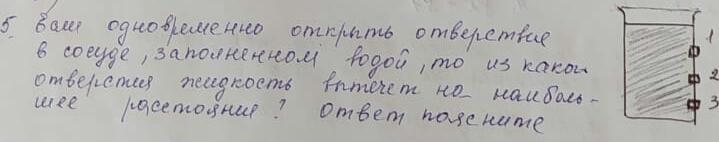 5. Если одновременно открыть отверстия
в сосуде, заполненном водой, то из какого
отверстия жидкость вытечет на наиболь-
шее расстояние? Ответ поясните
1
2
3